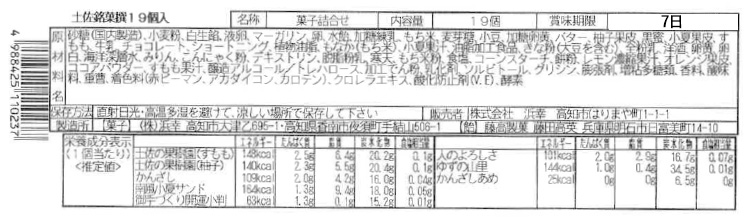 土佐銘菓撰19個入
名称 菓子詰合せ 内容量 19個 賞味期限 7日
原材料名
砂糖(国内製造)、小麦粉、白生餡、液卵、マーガリン、卵、水飴、加糖練乳、もち米、麦芽糖、小豆、加糖卵黄、バター、柚子果皮、黒蜜、小夏果皮、すもも、牛乳、チョコレート、ショートニング、植物油脂、もなか(もち米)、小夏果汁、油脂加工食品、きな粉(大豆を含む)、全粉乳、洋酒、卵黄、卵白、海洋深層水、みりん、こんにゃく粉、デキストリン、脱脂粉乳、寒天、もち米粉、食塩、コーンスターチ、餅粉、レモン濃縮果汁、オレンジ果皮、ココアパウダー、すもも果汁、醸造アルコール/トレハロース、加工でん粉、乳化剤、ソルビトール、グリシン、膨張剤、増粘多糖類、香料、酸味料、重曹、着色料(赤ビーマン、アカダイコン、カロテン)、クロレラエキス、酸化防止剤(V.E)、酵素
保存方法 直射日光・高温多湿を避けて、涼しい場所で保存して下さい 販売者 株式会社 浜幸 高知市はりまや町1-1-1
製造所 【菓子】 (株)浜幸 高知市大津乙695-1・高知県香南市夜須町手結山506-1 【飴】 藤高製菓 藤田高英 兵庫県明石市日富美町14-10
栄養成分表示 (1個当たり) <推定値>
エネルギー たんぱく質 脂質 炭水化物 食塩相当量 エネルギー たんぱく質 脂質 炭水化物 食塩相当量
土佐の果樹園(すもも) 148kcal 2.5g 6.4g 20.2g 0.1g 人のよろしさ 101kcal 2.0g 2.9g 16.7g 0.07g
土佐の果樹園(柚子) 140kcal 2.3g 5.5g 20.4g 0.1g ゆずの山里 144kcal 1.0g 0.4g 34.5g 0.01g
かんざし 109kcal 2.0g 4.2g 16.0g 0.04g かんざしあめ 25kcal 0g 0g 6.5g 0g
南国小夏サンド 164kcal 1.3g 9.4g 18.0g 0.05g
御手づくり開運小判 63kcal 1.3g 0.1g 15.2g 0.01g
4988425110237